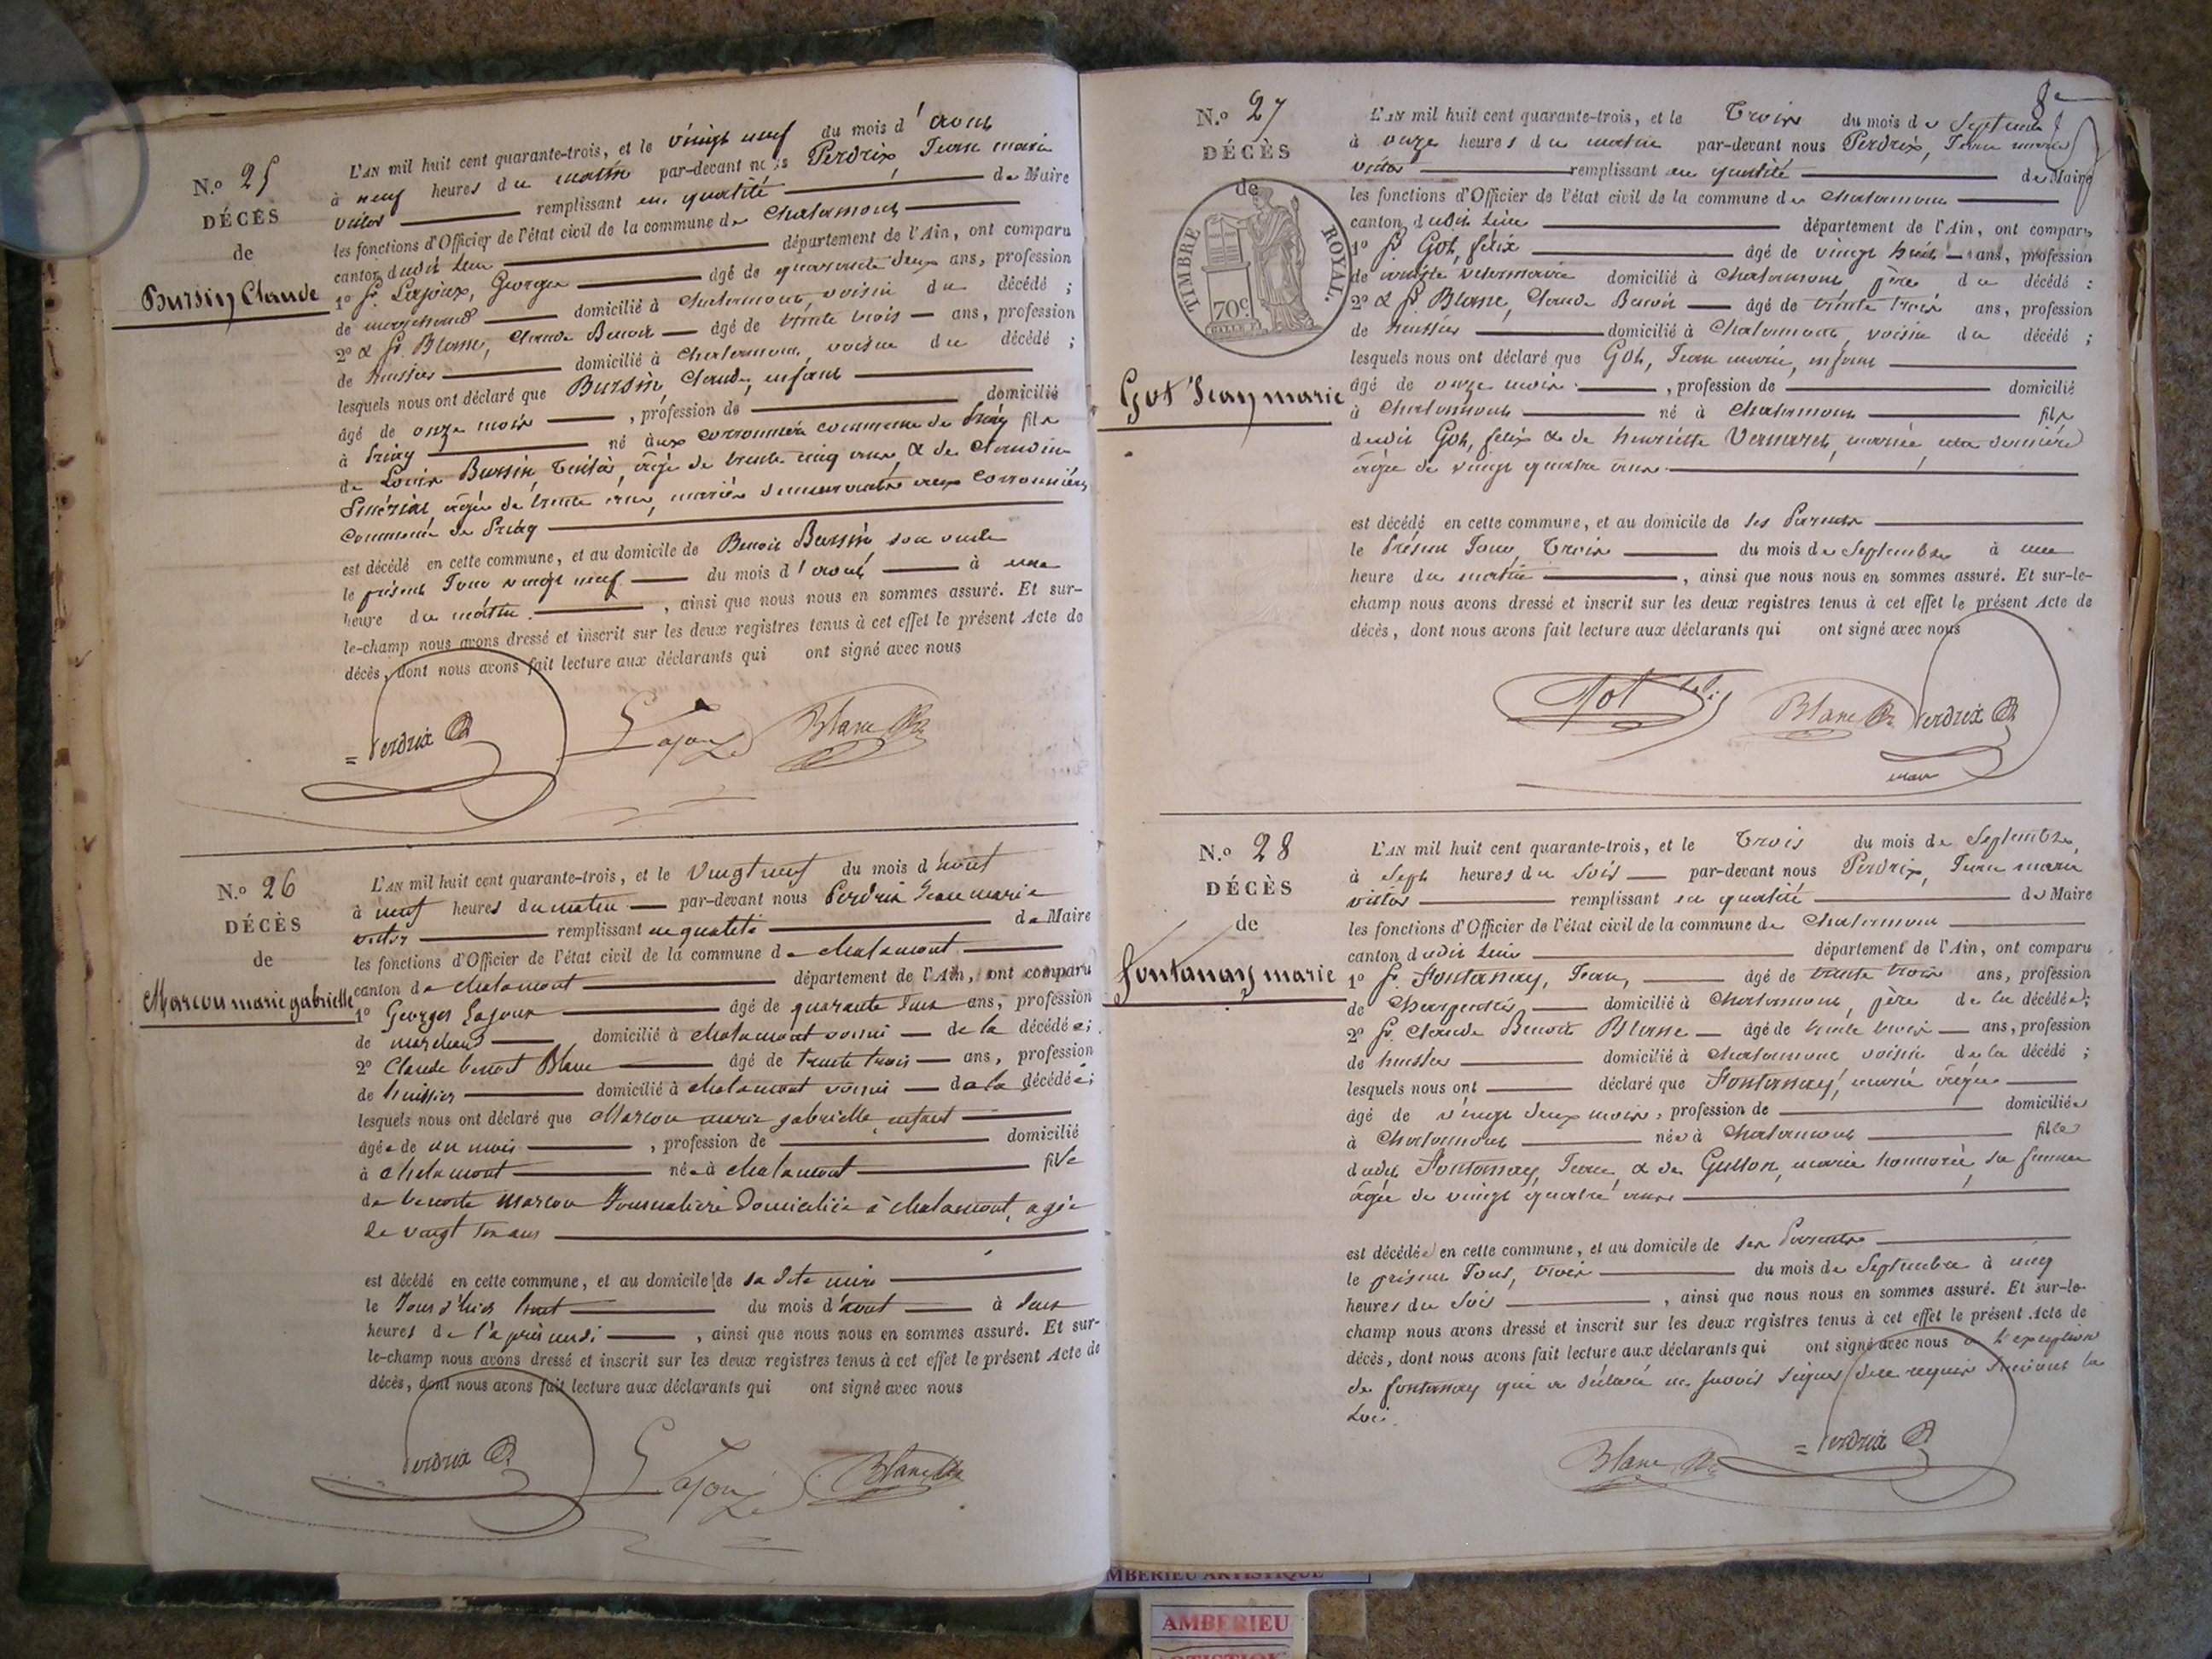 N.º 25
DÉCÈS
de
Bursin Claude
L'AN mil huit cent quarante-trois, et le vingt neuf du mois d'août
à neuf heures du matin par-devant nous Perdrix, Jean marie
victor remplissant en qualité de Maire
les fonctions d'Officier de l'état civil de la commune de Chalamont
canton dudit lieu département de l'Ain, ont comparu
1º Sr. Lajoux, Georges âgé de quarante deux ans, profession
de marchand domicilié à Chalamont, voisin du décédé ;
2º & Sr. Blanc, Claude Benoit âgé de trente trois ans, profession
de huissier domicilié à Chalamont, voisin du décédé ;
lesquels nous ont déclaré que Bursin, Claude, enfant
âgé de onze mois , profession de domicilié
à Priay né aux Corronnières commune de Priay fils
de Louis Bursin, âgé de trente cinq ans, & de Claudine
âgée de trente ans, mariés demeurants aux Corronnières
Commune de Priay
est décédé en cette commune, et au domicile de Benoit Bursin son oncle
le présent Jour vingt neuf du mois d'août à une
heure du matin. , ainsi que nous nous en sommes assuré. Et sur-
le-champ nous avons dressé et inscrit sur les deux registres tenus à cet effet le présent Acte de
décès, dont nous avons fait lecture aux déclarants qui ont signé avec nous
= Perdrix Lajoux Blanc
N.º 26
DÉCÈS
de
Marcon marie gabrielle
L'AN mil huit cent quarante-trois, et le Vingt neuf du mois d'Aout
à neuf heures du matin par-devant nous Perdrix Jean marie
victor remplissant en qualité de Maire
les fonctions d'Officier de l'état civil de la commune de chalamont
canton de chalamont département de l'Ain, ont comparu
1º Georges Lajoux âgé de quarante deux ans, profession
de marchand domicilié à chalamont voisin de la décédée ;
2º Claude benoit Blanc âgé de trente trois ans, profession
de huissier domicilié à chalamont voisin de la décédée ;
lesquels nous ont déclaré que Marcon marie gabrielle, enfant
âgée de un mois , profession de domicilié
à chalamont née à chalamont fille
de benoite Marcon Journalière Domiciliée à chalamont, agée
de vingt ans
est décédé en cette commune, et au domicile de sa dite mère
le Jour d'hier du mois d'aout à deux
heures de l'après midi , ainsi que nous nous en sommes assuré. Et sur-
le-champ nous avons dressé et inscrit sur les deux registres tenus à cet effet le présent Acte de
décès, dont nous avons fait lecture aux déclarants qui ont signé avec nous
Perdrix Lajoux Blanc
N.º 27
DÉCÈS
de
TIMBRE ROYAL.
70c.
Got Jean marie
L'AN mil huit cent quarante-trois, et le Trois du mois de Septembre
à onze heures du matin par-devant nous Perdrix, Jean marie
victor remplissant en qualité de Maire
les fonctions d'Officier de l'état civil de la commune de Chalamont
canton dudit lieu département de l'Ain, ont comparu
1º Sr Got, félix âgé de vingt huit ans, profession
de artiste vétérinaire domicilié à Chalamont, père du décédé :
2º & Sr Blanc, Claude Benoit âgé de trente trois ans, profession
de huissier domicilié à Chalamont, voisin du décédé ;
lesquels nous ont déclaré que Got, Jean marie, enfant
âgé de onze mois , profession de domicilié
à Chalamont né à Chalamont fils
dudit Got, félix & de henriette Vernaret, mariée cette dernière
âgée de vingt quatre ans.
est décédé en cette commune, et au domicile de ses Parents
le Présent Jour Trois du mois de Septembre à une
heure du matin , ainsi que nous nous en sommes assuré. Et sur-le-
champ nous avons dressé et inscrit sur les deux registres tenus à cet effet le présent Acte de
décès, dont nous avons fait lecture aux déclarants qui ont signé avec nous
Got félix Blanc Perdrix
maire
N.º 28
DÉCÈS
de
Fontanay marie
L'AN mil huit cent quarante-trois, et le Trois du mois de Septembre,
à Sept heures du Soir par-devant nous Perdrix, Jean marie
victor remplissant en qualité de Maire
les fonctions d'Officier de l'état civil de la commune de Chalamont
canton dudit lieu département de l'Ain, ont comparu
1º Sr. Fontanay, Jean, âgé de trente trois ans, profession
de Charpentier domicilié à Chalamont, père de la décédée ;
2º Sr Claude Benoit Blanc âgé de trente trois ans, profession
de huissier domicilié à Chalamont voisin de la décédé ;
lesquels nous ont déclaré que Fontanay, marie âgée
âgé de vingt deux mois, profession de domiciliée
à Chalamont née à Chalamont fille
dudit Fontanay, Jean, & de Guillon, marie honnorée, sa femme
âgée de vingt quatre ans
est décédée en cette commune, et au domicile de ses Parents
le présent Jour, trois du mois de Septembre à cinq
heures du Soir , ainsi que nous nous en sommes assuré. Et sur-le-
champ nous avons dressé et inscrit sur les deux registres tenus à cet effet le présent Acte de
décès, dont nous avons fait lecture aux déclarants qui ont signé avec nous à l'exception
de fontanay qui a déclaré ne savoir signer de ce requis suivant la
Loi.
Blanc = Perdrix
AMBERIEU ARTISTIQUE
AMBERIEU